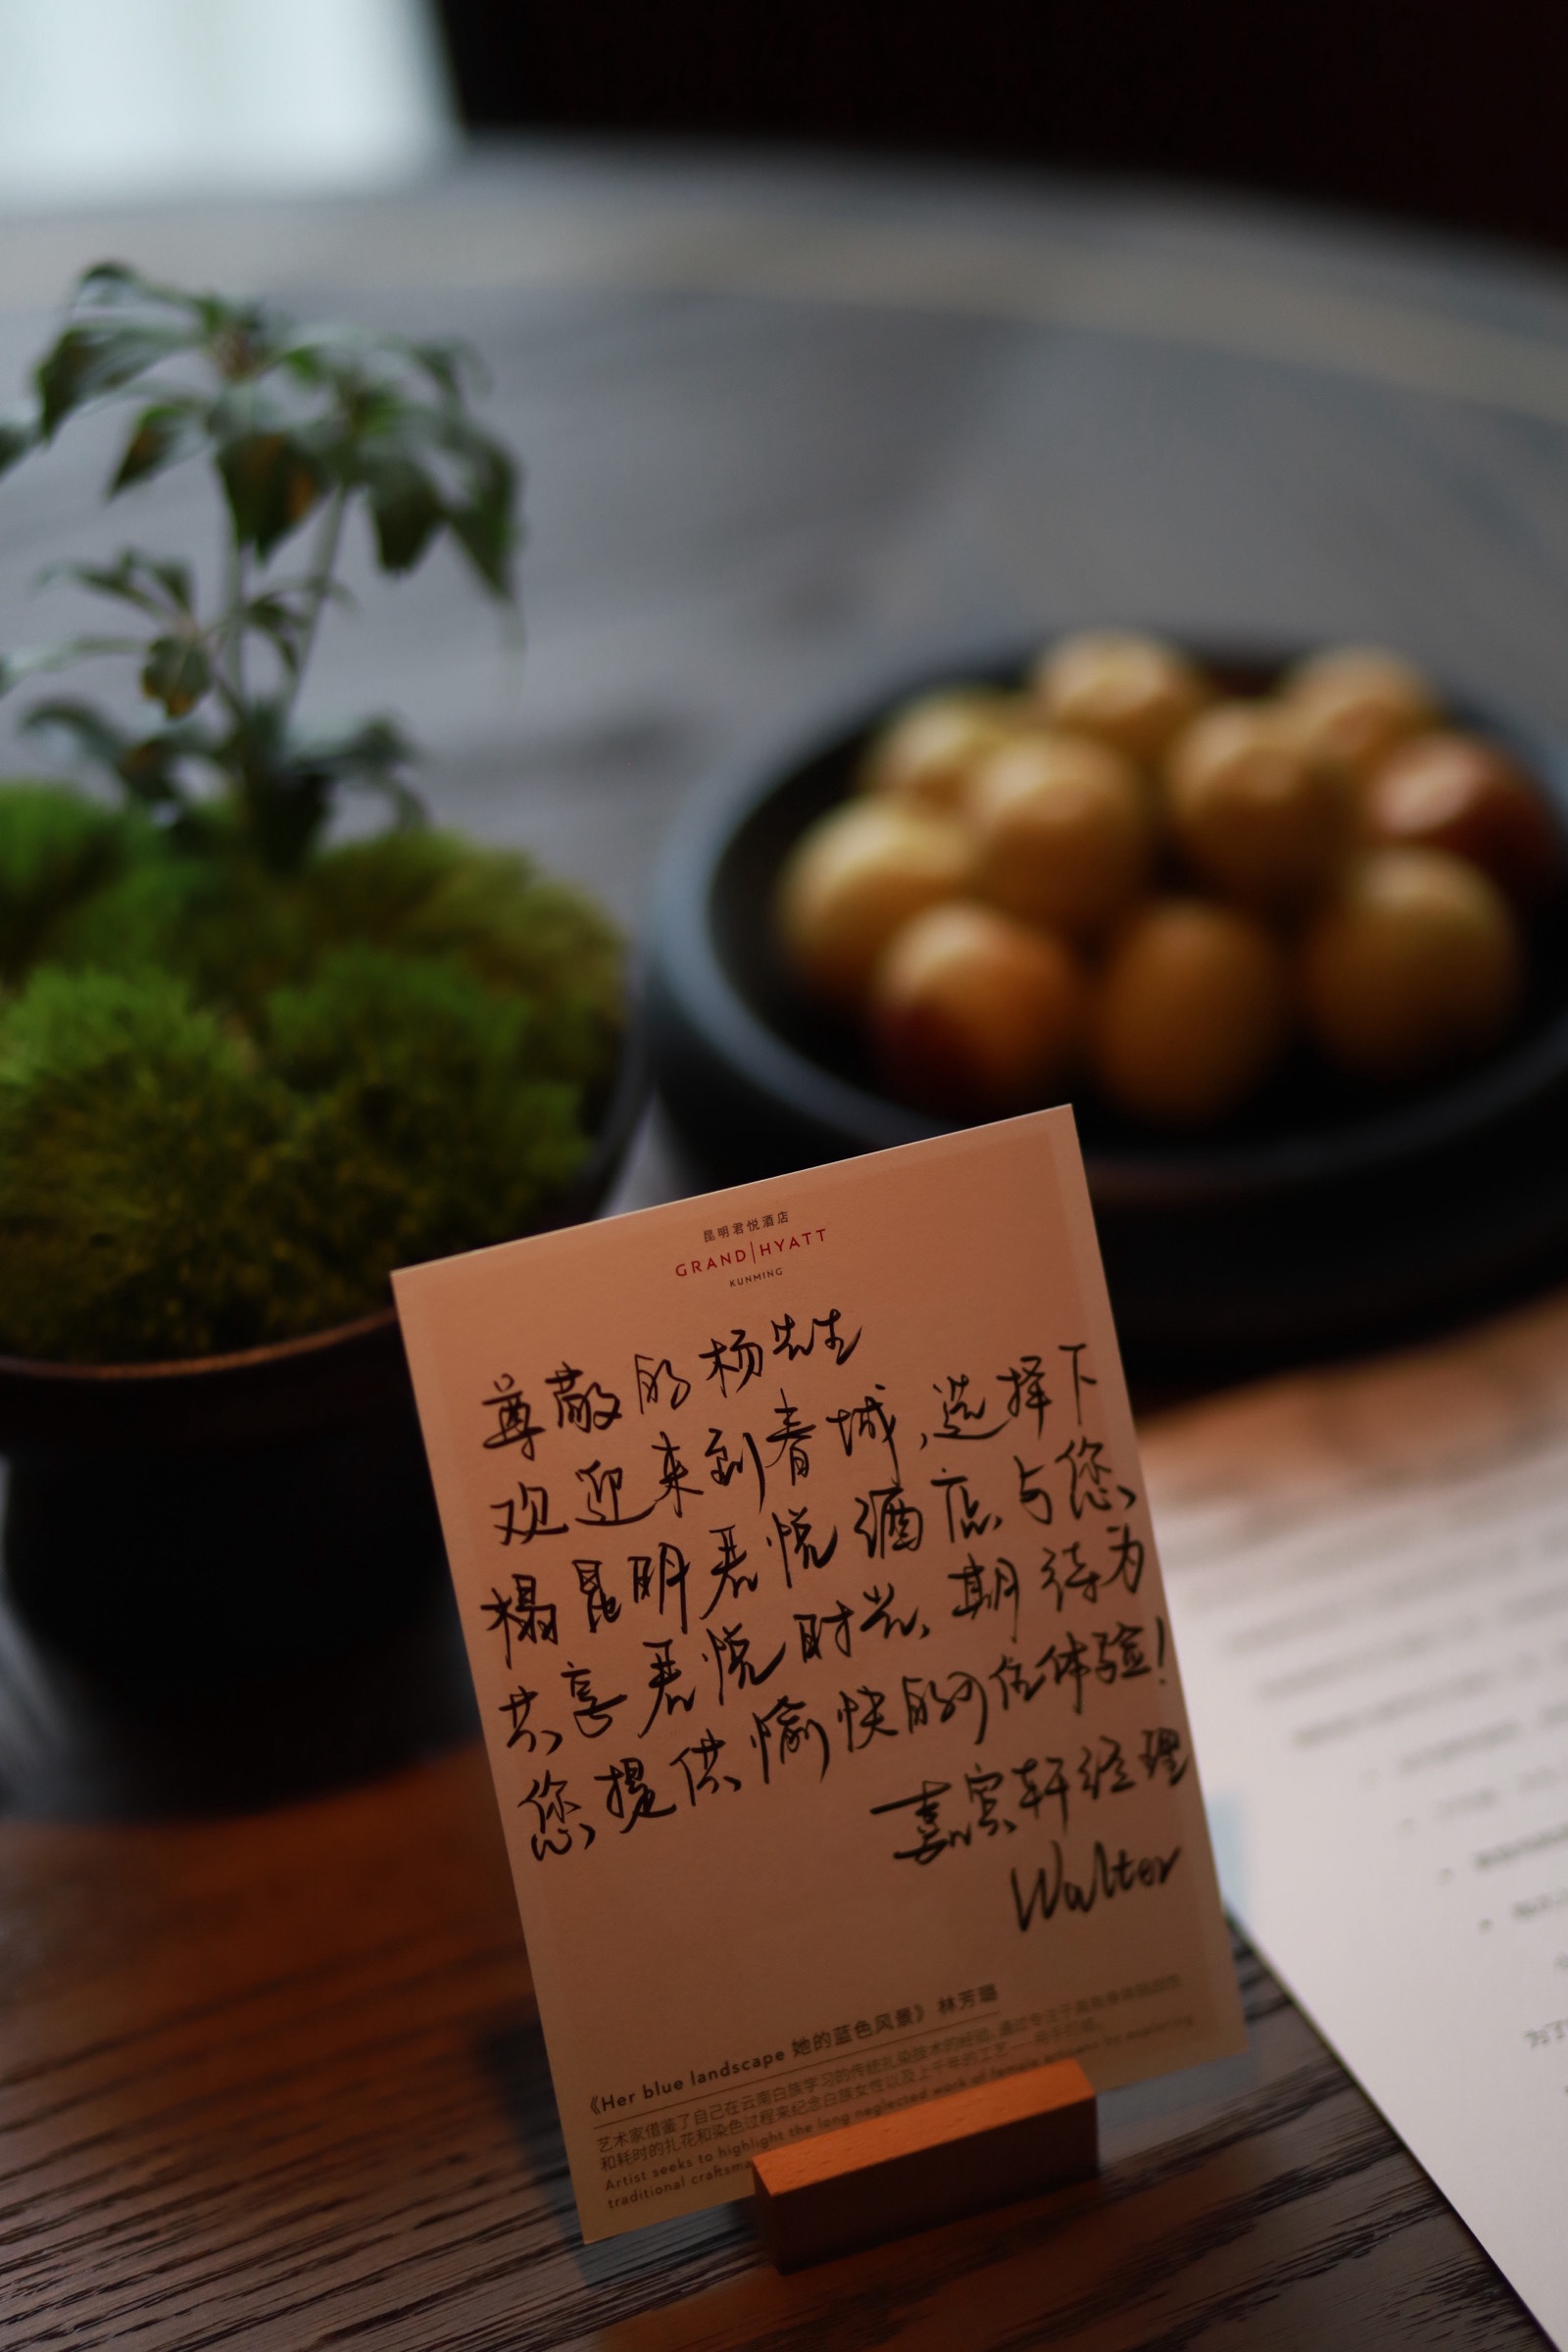 昆明君悦酒店
GRAND|HYATT
KUNMING
尊敬的杨先生
欢迎来到春城,选择下
榻昆明君悦酒店,与您
共享君悦时光,期待为
您提供愉快的入住体验!
嘉宾轩经理
Walter
《Her blue landscape 她的蓝色风景》 林芳璐
艺术家借鉴了自己在云南白族学习的传统扎染技术的经验,通过专注于
和耗时的扎花和染色过程来纪念白族女性以及上千年的工艺
Artist seeks to highlight the long neglected work of female artisans by exploring
traditional craftsma